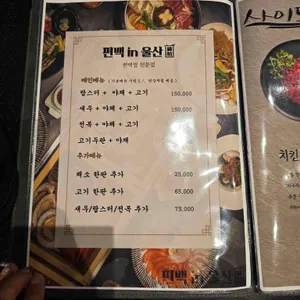 편백 in 울산
편백찜 전문점
메인메뉴
랍스터 + 야채 + 고기 150,000
새우 + 야채 + 고기 150,000
전복 + 야채 + 고기
고기두판 + 야채
추가메뉴
채소 한판 추가 25,000
고기 한판 추가 65,000
새우/랍스터/전복 추가 75,000
편백 in 울산
사이드
치킨